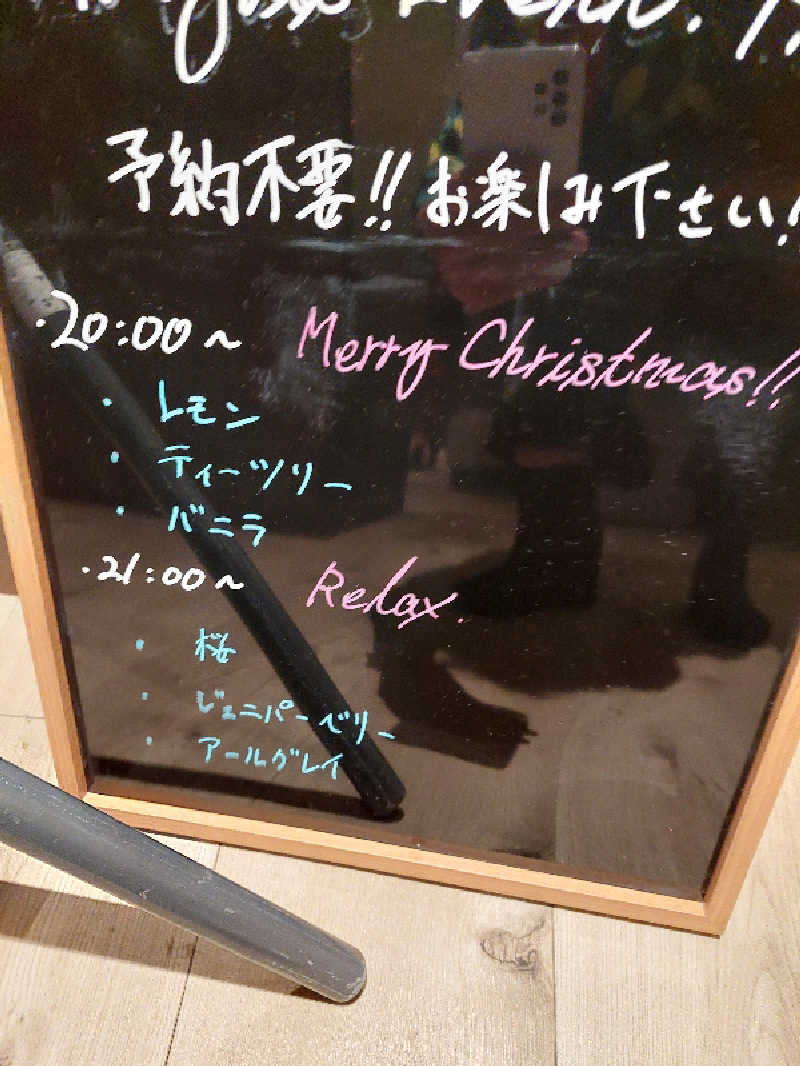 予約不要!! お楽しみ下さい!
・20:00~ Merry Christmas!!
・レモン
・ティーツリー
・バニラ
・21:00~ Relax.
・桜
・ジェニパーベリー
・アールグレイ